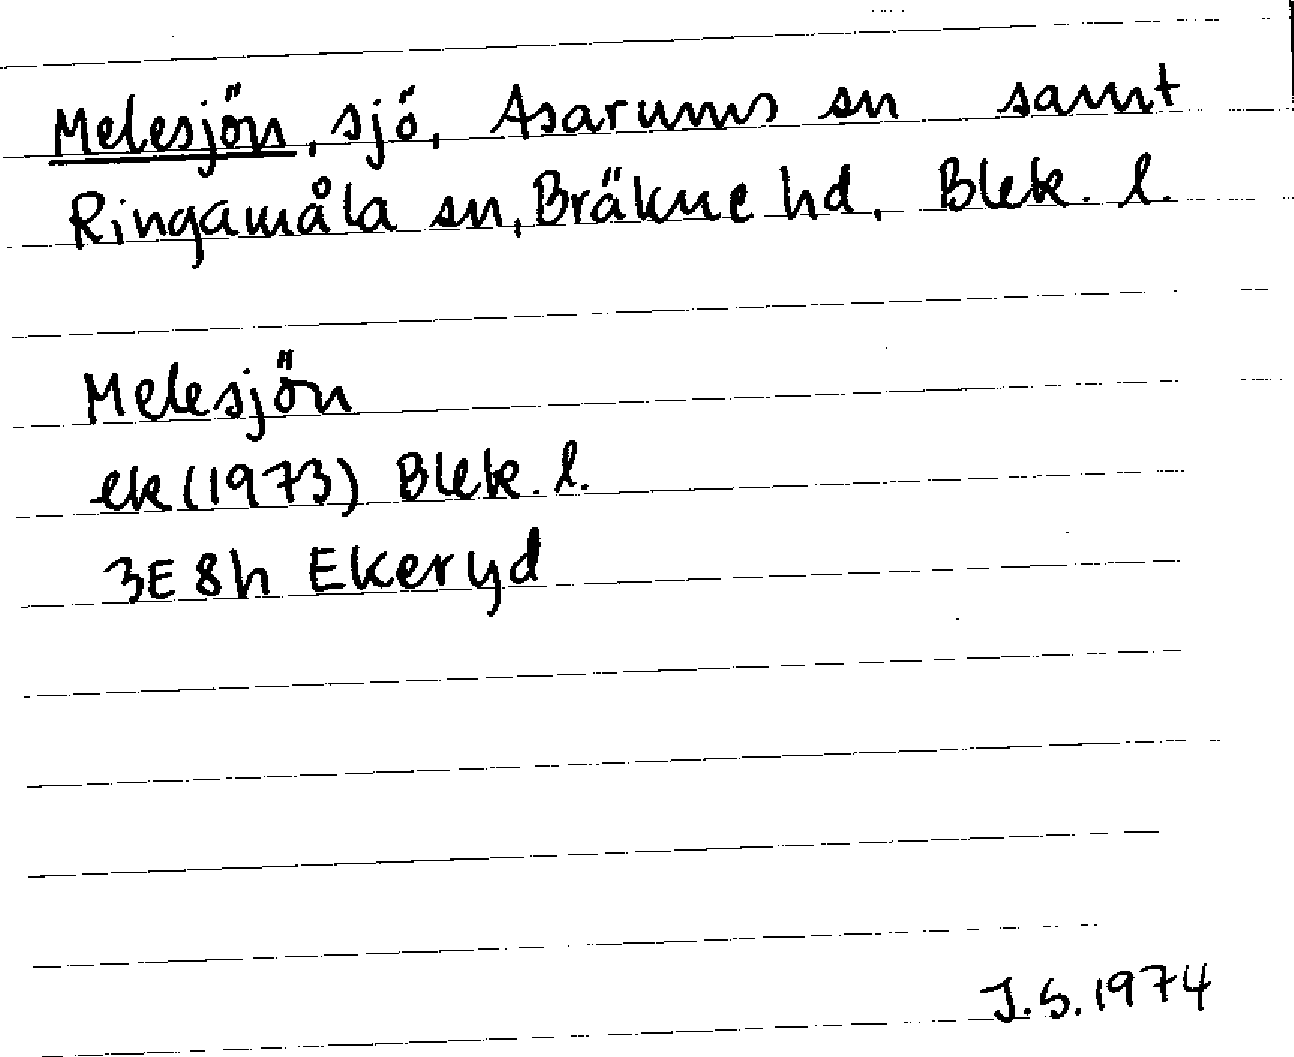 Melesjön, sjö, Asarums sn samt
Ringamåla sn, Bräkne hd, Blek. l.
Melesjön
ek (1973) Blek. l.
3E 8h Ekeryd
J.S. 1974